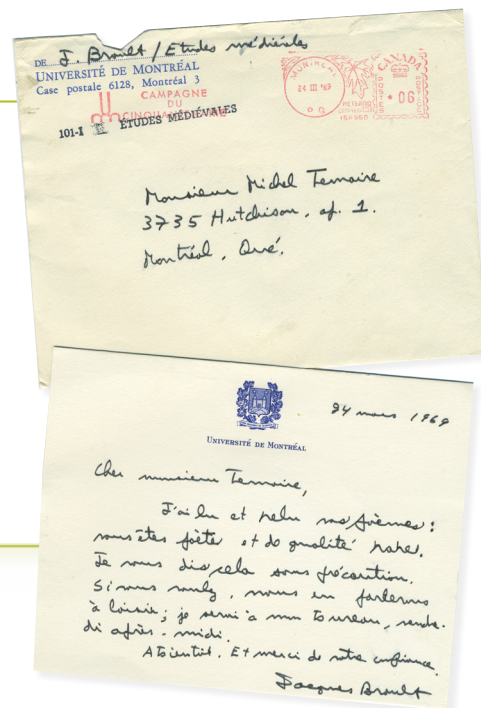 DE J. Brault / Etudes médiévales
UNIVERSITÉ DE MONTRÉAL
Case postale 6128, Montréal 3
CAMPAGNE
DU
CINQUANTENAIRE
101-1 ÉTUDES MÉDIÉVALES
MONTREAL
24 III '69
P Q
CANADA
POSTES
06
Monsieur Michel Lemaire
3735 Hutchison, ap. 1.
Montréal, Qué.
24 mars 1969
UNIVERSITÉ DE MONTRÉAL
Cher monsieur Lemaire,
J'ai lu et relu vos poèmes :
vous êtes poète et de qualité rare.
Je vous dis cela sans précaution.
Si vous voulez, nous en parlerons
à loisir ; je serai à mon bureau, vendre-
di après-midi.
A bientôt. Et merci de votre confiance.
Jacques Brault